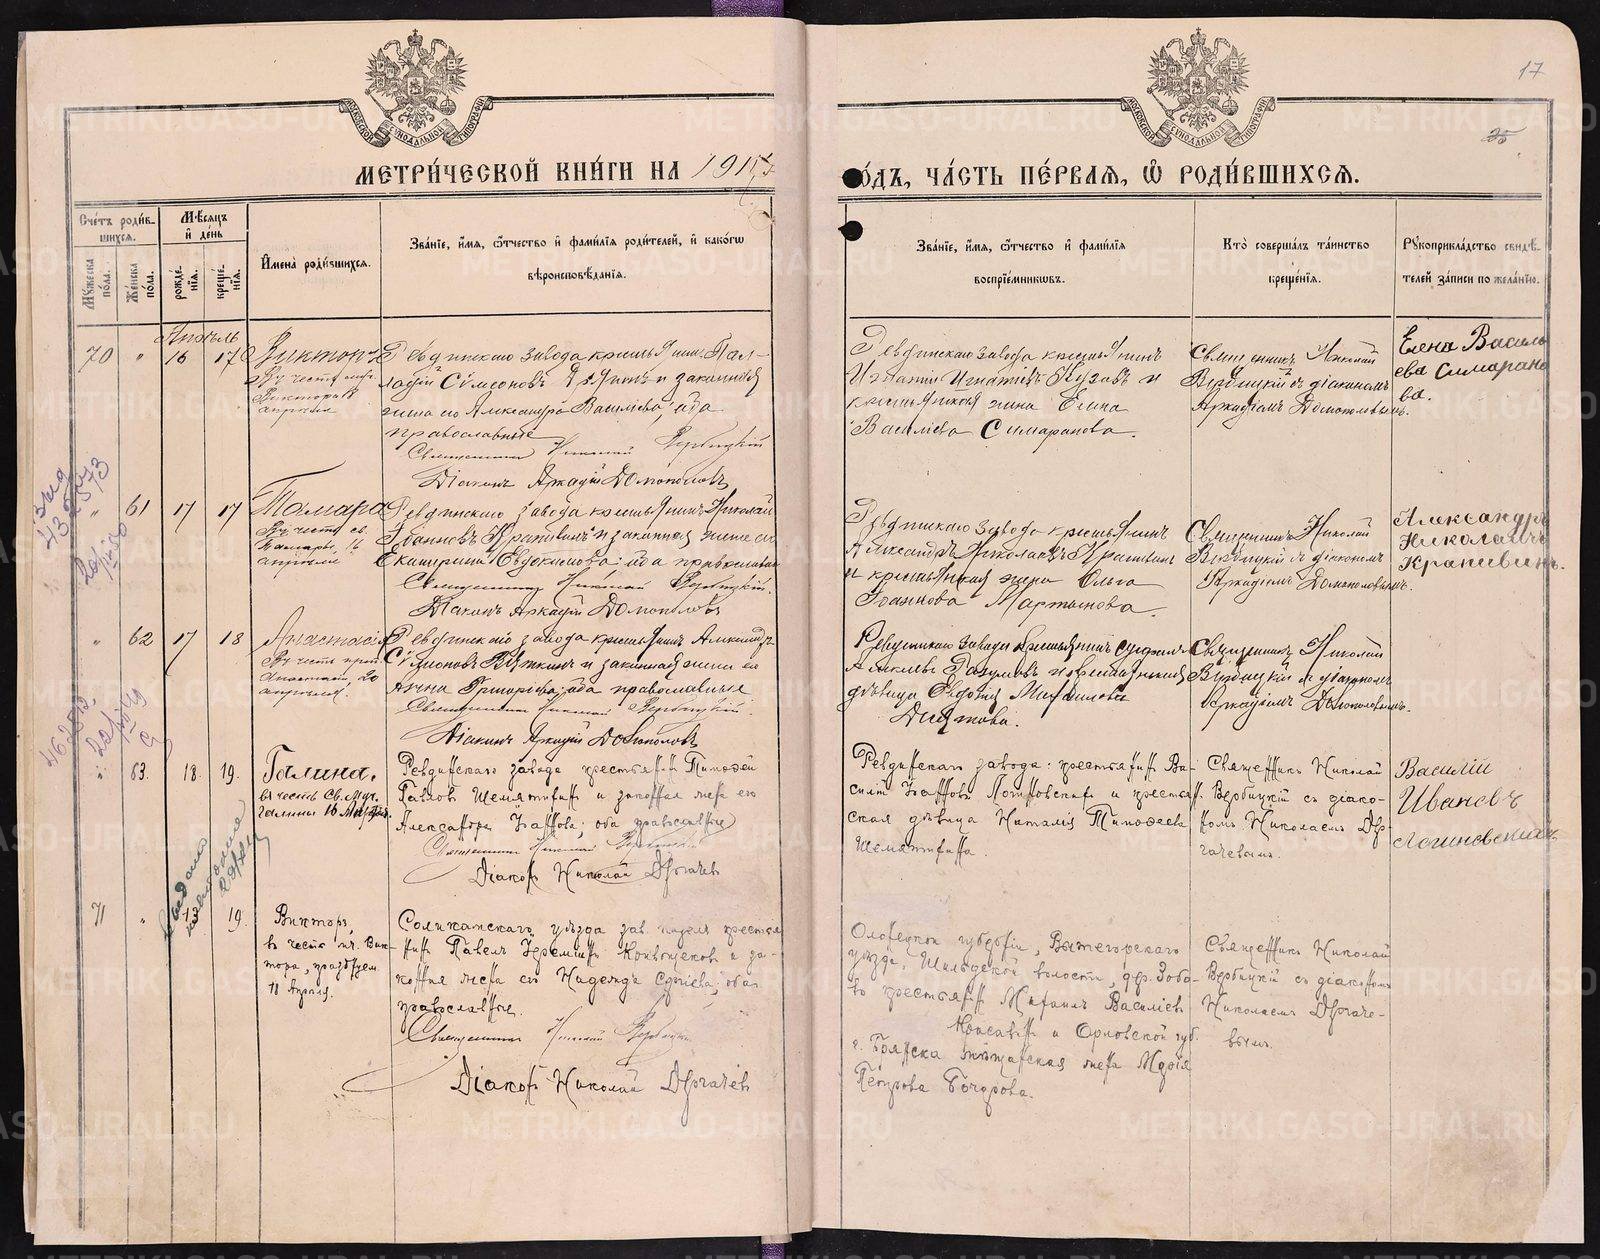 17
25
МОСКОВСКОЙ СѴНОДАЛЬНОЙ ТІПОГРАФІИ
МОСКОВСКОЙ СѴНОДАЛЬНОЙ ТІПОГРАФІИ
МЕТРИ́ЧЕСКОЙ КНИ́ГИ НА 191
ОДЪ, ЧА́СТЬ ПЕ́РВАЯ, Ѡ҆ РОДИ́ВШИХСЯ.
Сче́тъ роди́в-
шихся.
Мꙋжеска по́ла.
Же́нска по́ла.
Мѣ́сяцъ
и҆ де́нь
рожде́-нїя.
креще́-нїя.
И҆мена̀ роди́вшихся.
Зва́нїе, и҆́мя, ѻ҆́тчество и҆ фами́лїя роди́телей, и҆ како́гѡ
вѣроисповѣ́данїя.
Зва́нїе, и҆́мя, ѻ҆́тчество и҆ фами́лїя
воспрїе́мникѡвъ.
Кто̀ соверша́лъ та́инство
креще́нїя.
Рꙋкоприкла́дство свидѣ́-
телей за́писи по жела́нїю.
Апрѣль
70 " 16 17 Викторъ
въ честь муч.
Виктора 18
апрѣля
Ревдинскаго завода крестьянинъ Пал-
ладій Симеоновъ и законная
жена его Александра Василіева, оба
православные
Священникъ Николай Вербицкій
Діаконъ Аркадій Домополовъ
Ревдинскаго завода крестьянинъ
Игнатій Игнатіевъ Пузовъ и
крестьянская жена Елена
Василіева Симаранова.
Священникъ Николай
Вербицкій съ діакономъ
Аркадіемъ Домополовымъ.
Елена Василь
ева Симарано
ва.
" 61 17 17 Тамара
Въ честь св.
Тамары,
апрѣля
Ревдинскаго завода крестьянинъ Николай
Іоанновъ Крапивинъ и законная жена его
Екатерина Евдокимова; оба православные
Священникъ Николай Вербицкій.
Діаконъ Аркадій Домополовъ
Ревдинскаго завода крестьянинъ
Александръ Николаевъ Крапивинъ
и крестьянская жена Ольга
Іоаннова Мартынова.
Священникъ Николай
Вербицкій съ діакономъ
Аркадіемъ Домополовымъ.
Александръ
Николаичъ
Крапивинъ.
" 62 17 18 Анастасія
Въ честь преп.
Анастасіи, 20
апрѣля.
Ревдинскаго завода крестьянинъ Александръ
Симеоновъ и законная жена его
Анна Григоріева; оба православные
Священникъ Николай Вербицкій.
Діаконъ Аркадій Домополовъ
Ревдинскаго завода крестьянинъ
и крестьянская
дѣвица Евдокія Михаилова
Священникъ Николай
Вербицкій съ діакономъ
Аркадіемъ Домополовымъ.
" 63. 18. 19. Галина,
въ честь Св. Муч.
Галины 16 Апрѣля.
Ревдинскаго завода крестьянинъ Тимофей
Павловъ Шемятихинъ и законная жена его
Александра Іоаннова; оба православные
Священникъ Николай Вербицкій
Діаконъ Николай Дергачевъ
Ревдинскаго завода: крестьянинъ Ва-
силій Іоанновъ Логиновскихъ и крестьян-
ская дѣвица Наталія Тимофеева
Шемятихина.
Священникъ Николай
Вербицкій съ діако-
номъ Николаемъ Дер-
гачевымъ.
Василій
Ивановъ
Логиновскихъ
71 " 13 19. Викторъ,
въ честь мч. Вик-
тора, празднуем.
18 Апрѣля.
Соликамскаго уѣзда зав. крестья
нинъ Павелъ Еремѣевъ и за-
конная жена его Надежда Сергіева; оба
православные.
Священникъ Николай Вербицкій
Діаконъ Николай Дергачевъ
Олонецкой губерніи, Вытегорскаго
уѣзда, волости, дер.
крестьянинъ Михаилъ Василіевъ
и Орловской губ.
г. Брянска мѣщанская жена Марія
Петрова Бочарова.
Священникъ Николай
Вербицкій съ діакономъ
Николаемъ Дергаче-
вымъ.
METRIKI.GASO-URAL.RU